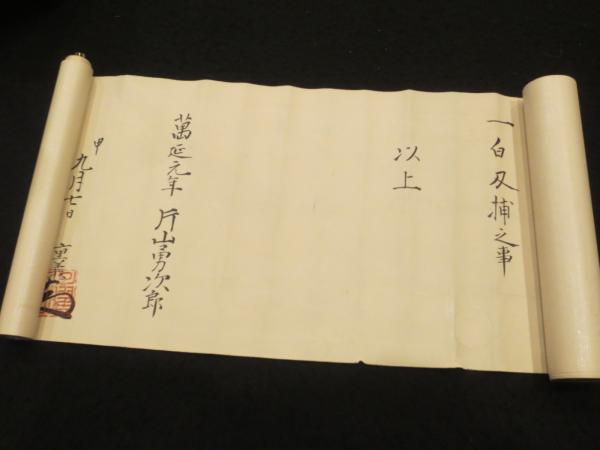 一白刃捕之事
以上
萬延元年 片山勇次郎
申九月七日